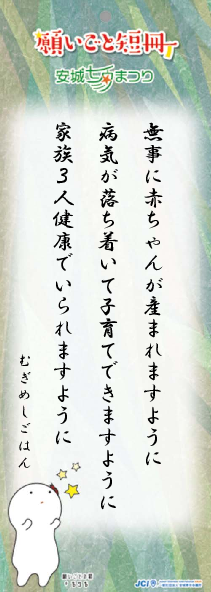 願いごと短冊
安城七夕まつり
無事に赤ちゃんが産まれますように
病気が落ち着いて子育てできますように
家族3人健康でいられますように
むぎめしごはん
JCI